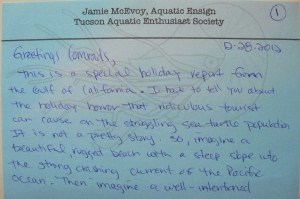 Jamie McEvoy, Aquatic Ensign
Tucson Aquatic Enthusiast Society
1
12-28-2012
Greetings Comrads,
This is a special holiday report from
the Gulf of California. I have to tell you about
the holiday horror that ridiculous tourist
can cause on the struggling sea turtle population
It is not a pretty story. So, imagine a
beautiful, rugged beach with a steep slope into
the strong crashing current of the Pacific
Ocean. Then imagine a well-intentioned